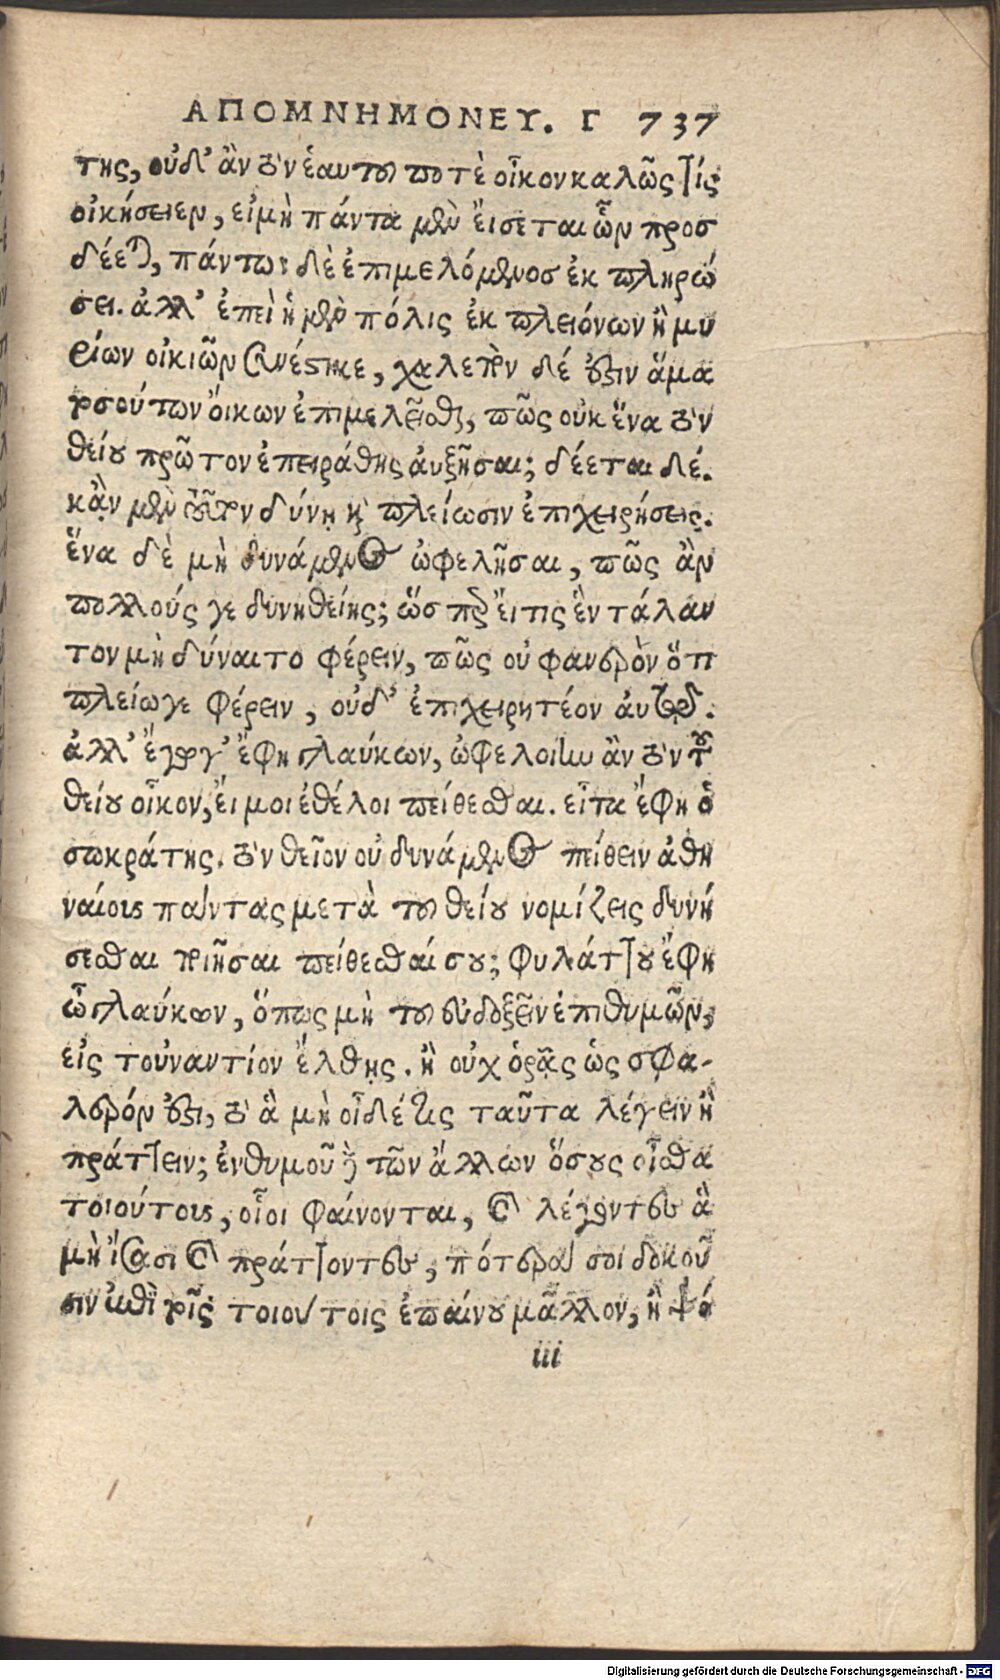 ΑΠΟΜΝΗΜΟΝΕΥ. Γ 737
της, οὐδ' ἂν τὸν ἑαυτοῦ ποτὲ οἶκον καλῶς τίς
οἰκήσειεν, εἰμὴ πάντα μὲν ἔισεται ὧν προσ
δέεται, πάντων δὲ ἐπιμελόμενος ἐκ πληρώ
σει. ἀλλ' ἐπεὶ ἡ μὲν πόλις ἐκ πλειόνων ἢ μυ
ρίων οἰκιῶν συνέστηκε, χαλεπὸν δέ ἐστιν ἅμα
τοσούτων ὄικων ἐπιμελεῖσθαι, πῶς οὐκ ἕνα τὸν
θείου πρῶτον ἐπειράθης ἀυξῆσαι; δέεται δέ.
κᾂν μὲν τοῦτον δύνῃ καὶ πλείωσιν ἐπιχειρήσεις.
ἕνα δὲ μὴ δυνάμενος ὠφελῆσαι, πῶς ἂν
πολλούς γε δυνηθείης; ὥσπερ ἔιτις ἓν τάλαν
τον μὴ δύναιτο φέρειν, πῶς οὐ φανερὸν ὅτι
πλείωγε φέρειν, οὐδ' ἐπιχειρητέον ἀυτῷ.
ἀλλ' ἔγωγ' ἔφη γλαύκων, ὠφελοίην ἂν τὸν τοῦ
θείου οἶκον, ἔι μοι ἐθέλοι πείθεσθαι. εἶτα ἔφη ὁ
σωκράτης. τὸν θεῖον οὐ δυνάμενος πείθειν ἀθη
ναίους πάντας μετὰ τοῦ θείου νομίζεις δυνή
σεσθαι ποιῆσαι πείθεσθαί σου; φυλάττου ἔφη
ὦ γλαύκων, ὅπως μὴ τοῦ εὐδοξεῖν ἐπιθυμῶν,
εἰς τοὐναντίον ἔλθῃς. ἢ οὐχ ὁρᾷς ὡς σφα-
λερόν ἐστι, τὸ ἃ μὴ οἶδέ τις ταῦτα λέγειν ἢ
πράττειν; ἐνθυμοῦ δὲ τῶν ἄλλων ὅσους οἶσθα
τοιούτους, οἷοι φαίνονται, καὶ λέγοντες ἃ
μὴ ἴσασι καὶ πράττοντες, πότερά σοι δοκοῦ
σιν ἐπὶ τοῖς τοιούτοις ἐπαίνου μᾶλλον, ἢ ψό
iii
Digitalisierung gefördert durch die Deutsche Forschungsgemeinschaft - DFG